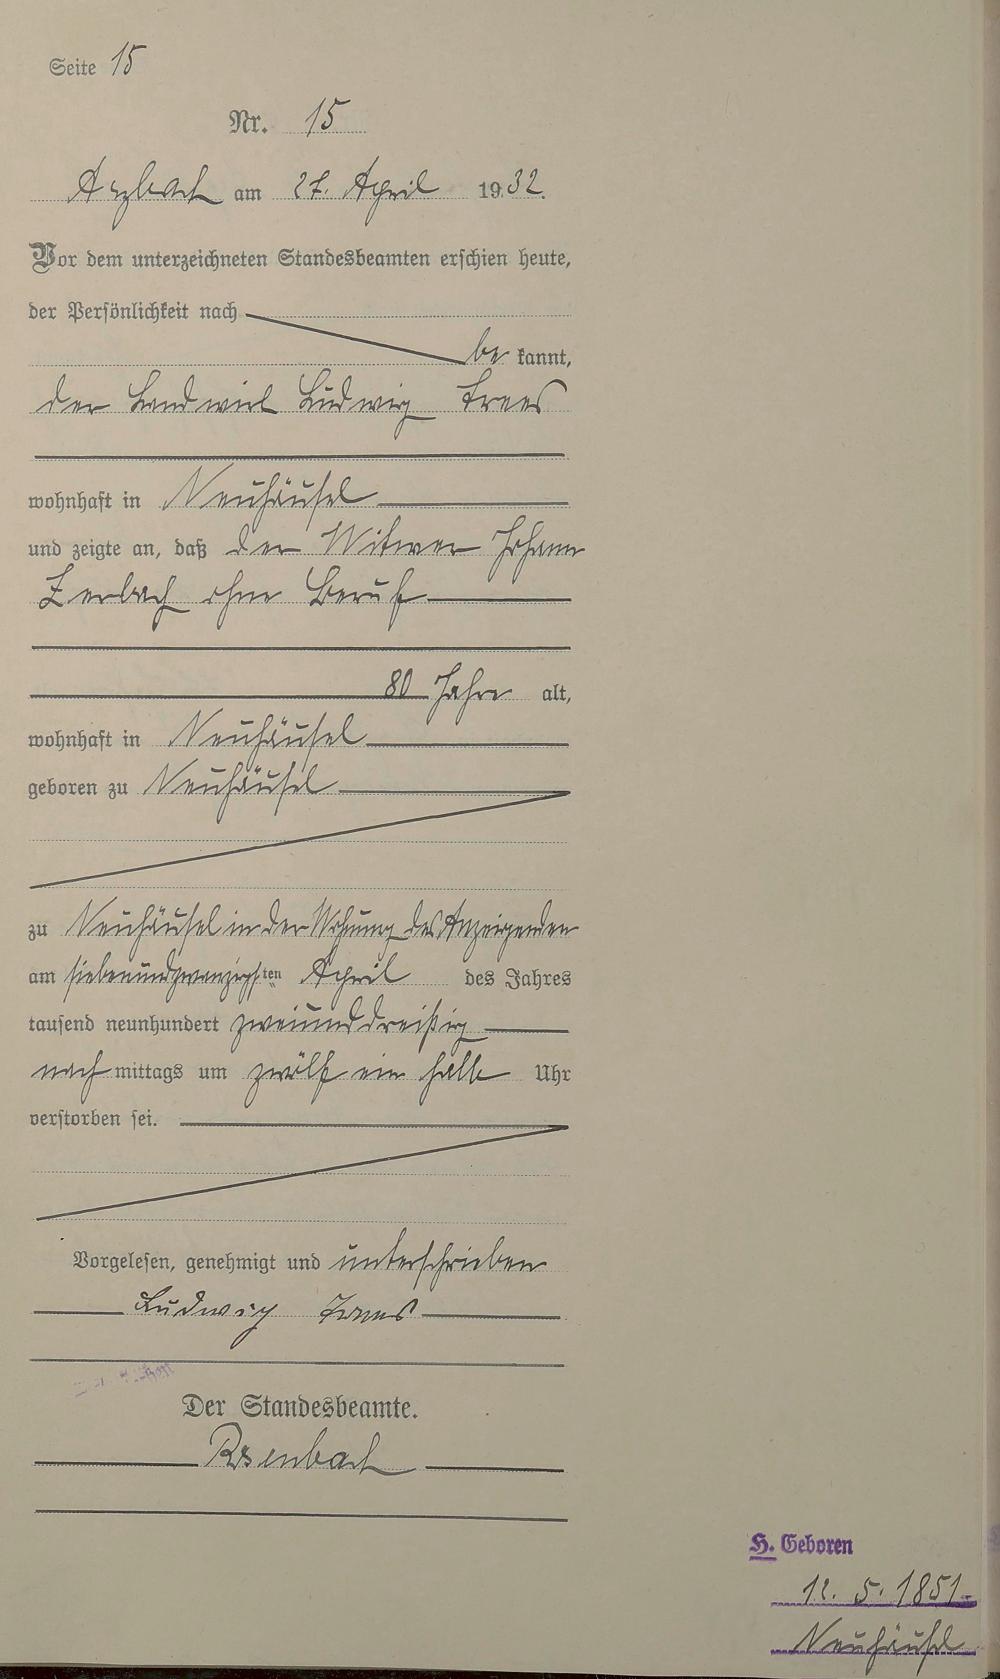 Seite 15
Nr. 15
Arzbach am 27. April 1932.
Vor dem unterzeichneten Standesbeamten erschien heute,
der Persönlichkeit nach
be kannt,
der Landwirt Ludwig Trees
wohnhaft in Neuhäusel
und zeigte an, daß der Witwer Johann
Zerbach ohne Beruf
80 Jahre alt,
wohnhaft in Neuhäusel
geboren zu Neuhäusel
zu Neuhäusel in der Wohnung des Anzeigenden
am siebenundzwanzigsten April des Jahres
tausend neunhundert zweiunddreißig
nach mittags um zwölf ein halb Uhr
verstorben sei.
Vorgelesen, genehmigt und unterschrieben
Ludwig Trees
Der Standesbeamte.
H. Geboren
12. 5. 1851
Neuhäusel